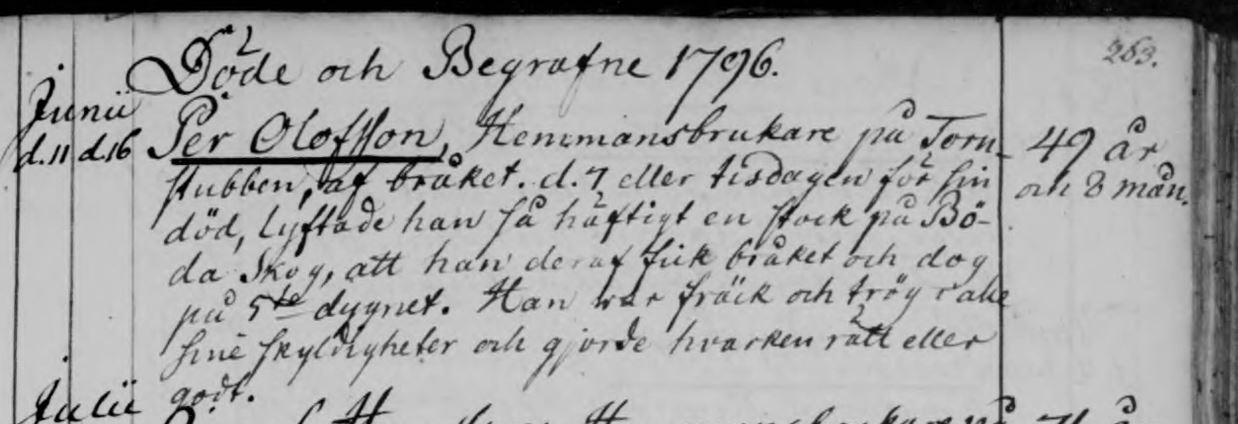 263.
Döde och Begrafne 1796.
Junii
d.11 d.16 Per Olofsson, Hemmansbrukare på Torn- 49 år
stubben, af bråket. d. 7 eller tisdagen för sin och 8 mån.
död, lyftade han så häftigt en stock på Bö-
da Skog, att han deraf fick bråket och dog
på 5te dygnet. Han war fräck och trög i alle
sine skyldigheter och gjorde hvarken rätt eller
godt.
Julii